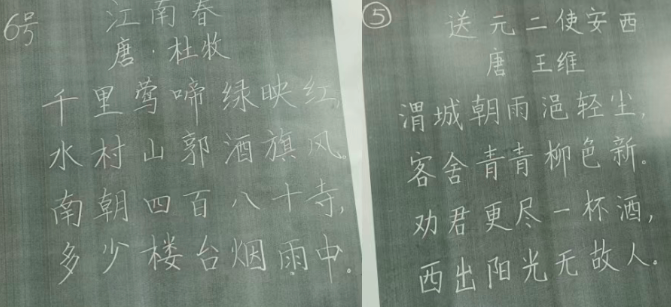 6号
江南春
唐·杜牧
千里莺啼绿映红,
水村山郭酒旗风
南朝四百八十寺,
多少楼台烟雨中。
⑤
送元二使安西
唐 王维
渭城朝雨浥轻尘,
客舍青青柳色新。
劝君更尽一杯酒,
西出阳光无故人。